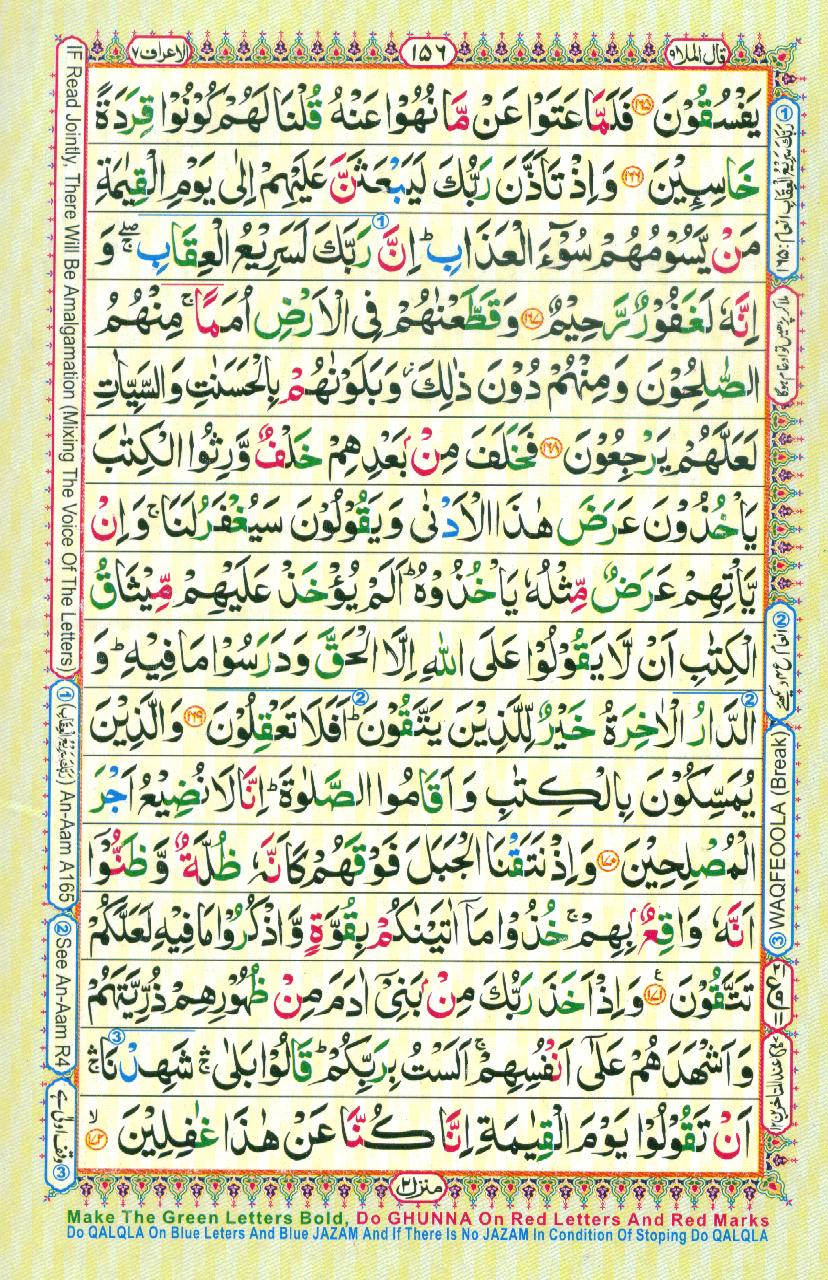 قال الملا ٩
١٥٦
الاعراف ٧
يَفْسُقُوْنَ ﴿١٦٥﴾ فَلَمَّا عَتَوْا عَنْ مَّا نُهُوْا عَنْهُ قُلْنَا لَهُمْ كُوْنُوْا قِرَدَةً
خَاسِـِٕيْنَ ﴿١٦٦﴾ وَاِذْ تَاَذَّنَ رَبُّكَ لَيَبْعَثَنَّ عَلَيْهِمْ اِلٰى يَوْمِ الْقِيٰمَةِ
مَنْ يَّسُوْمُهُمْ سُوْٓءَ الْعَذَابِ ؕ اِنَّ ① رَبَّكَ لَسَرِيْعُ الْعِقَابِ ۖۚ وَ
اِنَّهٗ لَغَفُوْرٌ رَّحِيْمٌ ﴿١٦٧﴾ وَقَطَّعْنٰهُمْ فِى الْاَرْضِ اُمَمًا ۚ مِنْهُمُ
الصّٰلِحُوْنَ وَمِنْهُمْ دُوْنَ ذٰلِكَ ؗ وَبَلَوْنٰهُمْ بِالْحَسَنٰتِ وَالسَّيِّاٰتِ
لَعَلَّهُمْ يَرْجِعُوْنَ ﴿١٦٨﴾ فَخَلَفَ مِنْۢ بَعْدِهِمْ خَلْفٌ وَّرِثُوا الْكِتٰبَ
يَاْخُذُوْنَ عَرَضَ هٰذَا الْاَدْنٰى وَيَقُوْلُوْنَ سَيُغْفَرُ لَنَا ۚ وَاِنْ
يَّاْتِهِمْ عَرَضٌ مِّثْلُهٗ يَاْخُذُوْهُ ؕ اَلَمْ يُؤْخَذْ عَلَيْهِمْ مِّيْثَاقُ
الْكِتٰبِ اَنْ لَّا يَقُوْلُوْا عَلَى اللّٰهِ اِلَّا الْحَقَّ وَدَرَسُوْا مَا فِيْهِ ؕ وَ
الدَّارُ ② الْاٰخِرَةُ خَيْرٌ لِّلَّذِيْنَ يَتَّقُوْنَ ؕ ② اَفَلَا تَعْقِلُوْنَ ﴿١٦٩﴾ وَالَّذِيْنَ
يُمَسِّكُوْنَ بِالْكِتٰبِ وَاَقَامُوا الصَّلٰوةَ ؕ اِنَّا لَا نُضِيْعُ اَجْرَ
الْمُصْلِحِيْنَ ﴿١٧٠﴾ وَاِذْ نَتَقْنَا الْجَبَلَ فَوْقَهُمْ كَاَنَّهٗ ظُلَّةٌ وَّظَنُّوْٓا
اَنَّهٗ وَاقِعٌۢ بِهِمْ ۚ خُذُوْا مَآ اٰتَيْنٰكُمْ بِقُوَّةٍ وَّاذْكُرُوْا مَا فِيْهِ لَعَلَّكُمْ
تَتَّقُوْنَ ﴿١٧١﴾ ع وَاِذْ اَخَذَ رَبُّكَ مِنْۢ بَنِىْٓ اٰدَمَ مِنْ ظُهُوْرِهِمْ ذُرِّيَّتَهُمْ
وَاَشْهَدَهُمْ عَلٰٓى اَنْفُسِهِمْ ۚ اَلَسْتُ بِرَبِّكُمْ ؕ قَالُوْا بَلٰى ۛۚ شَهِدْنَا ۛۚ ③
اَنْ تَقُوْلُوْا يَوْمَ الْقِيٰمَةِ اِنَّا كُنَّا عَنْ هٰذَا غٰفِلِيْنَ ﴿١٧٢﴾ ۙ
منزل ٢
IF Read Jointly, There Will Be Amalgamation (Mixing The Voice Of The Letters)
① An-Aam A165
② See An-Aam R4
③ وقف اولیٰ ہے
②
③ WAQFEOOLA (Break)
Make The Green Letters Bold, Do GHUNNA On Red Letters And Red Marks
Do QALQLA On Blue Leters And Blue JAZAM And If There Is No JAZAM In Condition Of Stoping Do QALQLA